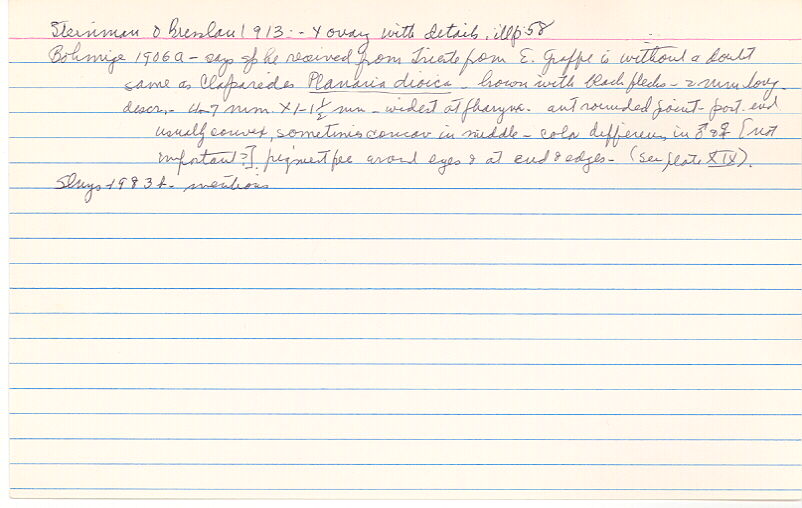 Steinman & Bresslau 1913 - - x ovary with details, ill p. 58
Bohmige 1906a - says sp he received from Trieste from E. Graffe is without a doubt
same as Claparedes Planaria dioica - brown with black flecks - 2 mm long.
descr. - 4-7 mm. x 1-1½ mm - widest at pharynx. ant rounded point - post. end
usually convex, sometimes concav in middle - color differences in ♂ & ♀ [not
important?] pigment free around eyes & at end & edges - (see plate XIX).
Sluys 1983 - mentions